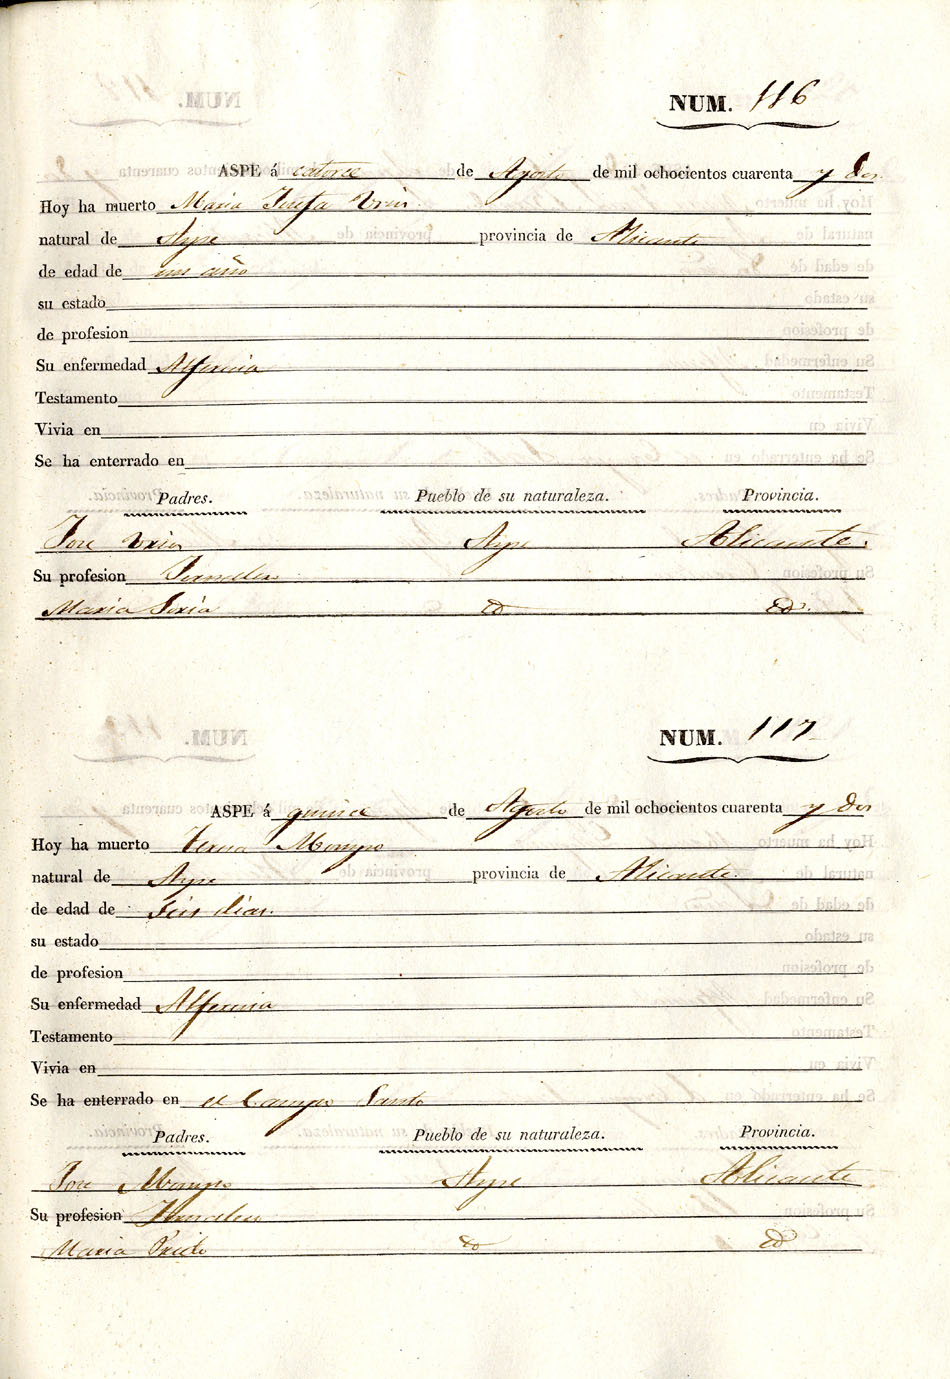 NUM. 116
ASPE á catorce de Agosto de mil ochocientos cuarenta y dos
Hoy ha muerto Maria Josefa
natural de Aspe provincia de Alicante
de edad de un año
su estado
de profesion
Su enfermedad Alferecia
Testamento
Vivia en
Se ha enterrado en
Padres. Pueblo de su naturaleza. Provincia.
Jose Aspe Alicante.
Su profesion Jornalero
Maria Soria Yd Yd.
NUM. 117
ASPE á quince de Agosto de mil ochocientos cuarenta y dos
Hoy ha muerto Teresa
natural de Aspe provincia de Alicante.
de edad de seis dias.
su estado
de profesion
Su enfermedad Alferecia
Testamento
Vivia en
Se ha enterrado en el Campo Santo
Padres. Pueblo de su naturaleza. Provincia.
Jose Aspe Alicante
Su profesion Jornalero
Maria Prieto Yd Yd